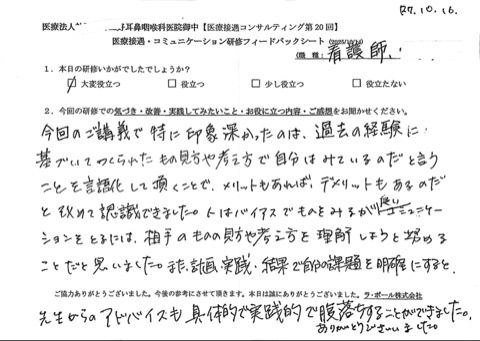 R7.10.16.
医療法人 耳鼻咽喉科医院御中【医療接遇コンサルティング第20回】
医療接遇・コミュニケーション研修フィードバックシート (2025/10/16)
(職種: 看護師.
1.本日の研修いかがでしたでしょうか?
☑大変役立つ □役立つ □少し役立つ □役立たない
2.今回の研修での気づき・改善・実践してみたいこと・お役に立つ内容・ご感想をお聞かせください。
今回のご講義で特に印象深かったのは、過去の経験に
基づいてつくられたもの見方や考え方で自分はみているのだと言う
ことを言語化して頂くことで、メリットもあれば、デメリットもあるのだ
と改めて認識できました。人はバイアスでものをみるが良いコミュニケー
ションをとるには、相手のものの見方や考え方を理解しようと努める
ことだと思いました。また、計画、実践、結果で自分の課題を明確にすると、
ご協力ありがとうございました。今後の参考にさせて頂きます。本日は誠にありがとうございました。ラ・ポール株式会社
先生からのアドバイスも具体的で実践的で腹落ちすることができました。
ありがとうございました。